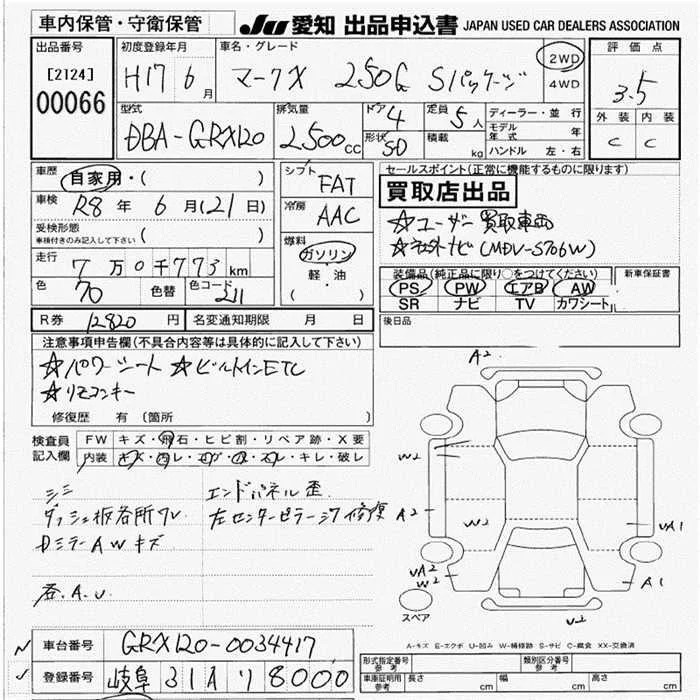 車内保管・守衛保管
JU 愛知 出品申込書 JAPAN USED CAR DEALERS ASSOCIATION
出品番号
[2124]
00066
初度登録年月
H17 6月
車名・グレード
マークX 250G Sパッケージ
2WD
4WD
評価点
3.5
外装 内装
C C
型式
DBA-GRX120
排気量
2,500cc
ドア 4
形状 SD
定員 5人
積載 kg
ディーラー・並行
モデル年式 年
ハンドル 左・右
車歴 自家用・( )
車検 R8年 6月(21日)
受検形態
車検付きのみ記入して下さい ( )
走行 7万0千773km
色 70 色替 色コード 211
シフト FAT
冷房 AAC
燃料
ガソリン
軽・油
( )
セールスポイント(正常に機能するものに限ります)
買取店出品
☆ユーザー買取車両
(MDV-S706W)
装備品(純正品に限り○をつけてください)
新車保証書
PS PW エアB AW
SR ナビ TV カワシート
R券 12820円 名変通知期限 月 日
後日品
注意事項申告欄(不具合内容等は具体的に記入して下さい)
☆パワーシート ☆ビルトインETC
☆リモコンキー
修復歴 有 (箇所
検査員
記入欄
FW キズ・飛石・ヒビ割・リペア跡・X要
内装 キズ・汚レ・コゲ・穴・スレ・キレ・破レ
シミ
ダッシュ板各所ワレ
DミラーAWキズ
エンドパネル歪
左センターピラーシワ修復
A2
W2
W2
A2
UA2
W2
UA1
A1
U2
スペア
A-キズ E-エクボ U-凹み W-補修跡 S-サビ C-腐食 XX-交換済
車台番号 GRX120-0034417
登録番号 岐阜 31A リ 8000
形式指定番号 参考
類別区分番号 参考
車庫証明用 参考 長さ cm 幅 cm 高さ cm